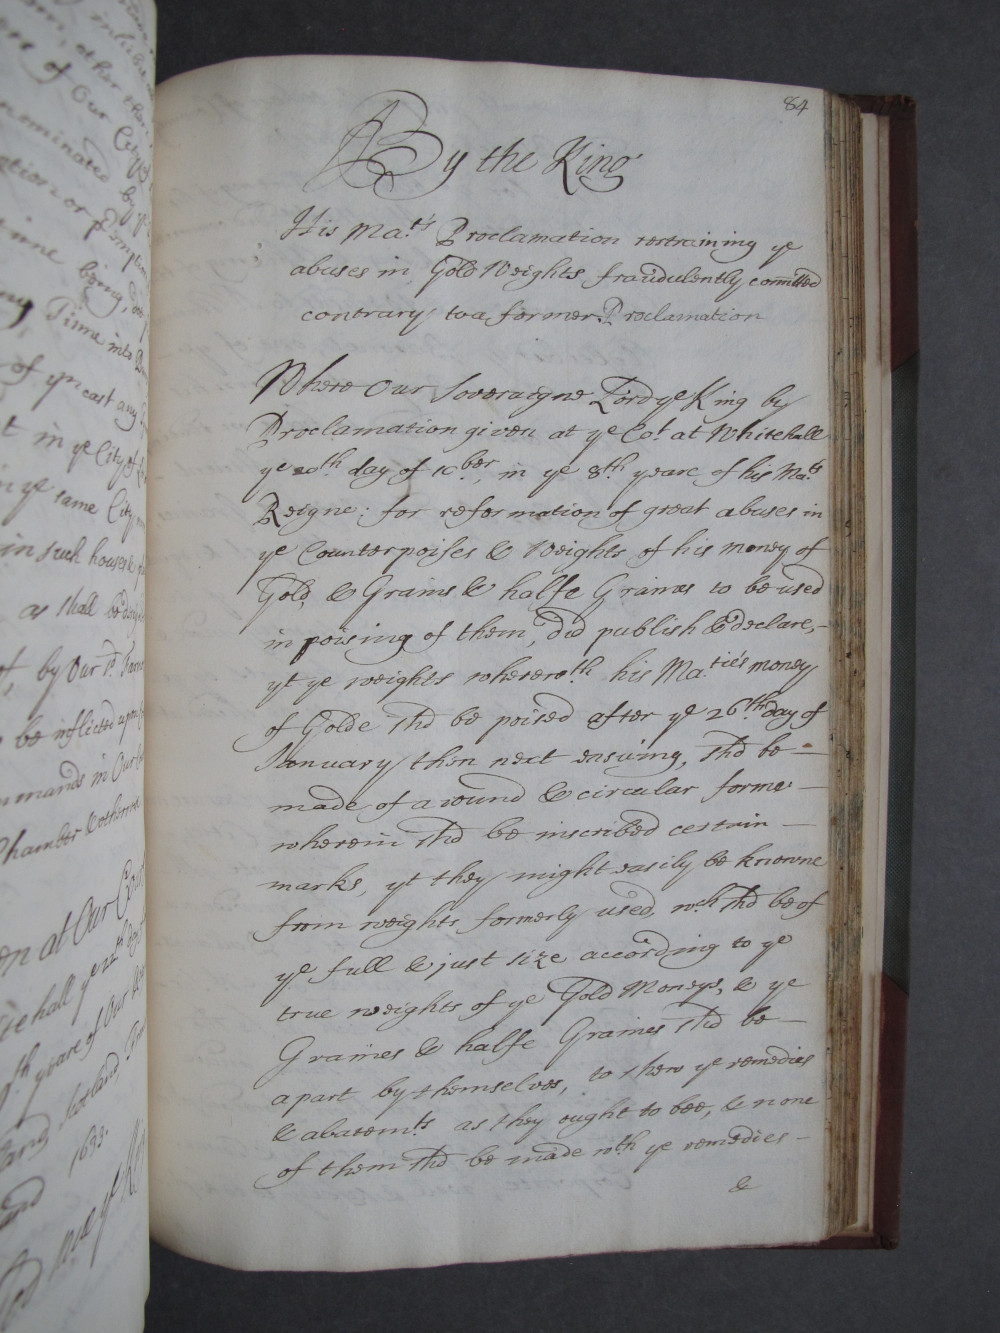 84
By the King
His Ma.ts Proclamation restraining ye
abuses in Gold Weights fraudulently comitted
contrary to a former Proclamation
Where Our Soveraigne Lord ye King by
Proclamation given at ye Cot at Whitehall
ye 20th day of 10ber, in ye 8th yeare of his Ma.ts
Reigne: for reformation of great abuses in
ye Counterpoises & Weights of his money of
Gold & Grains & halfe Graines to be used
in poising of them, did publish & declare,
yt ye weights wherewth his Ma.ties money
of Golde shd be poised after ye 26th day of
January then next ensuing, shd be
made of a round & circular forme
wherein shd be inscribed certain
marks, yt they might easily be knowne
from weights formerly used, wch shd be of
ye full & just size according to ye
true weights of ye Gold Moneys, & ye
Graines & halfe Graines shd be
apart by themselves, to shew ye remedies
& abatemts as they ought to bee, & none
of them shd be made wth ye remedies
&
of Our City
tion or
time being,
Time into
of yn cast any
t in ye City of
in ye same City
in such houses
as shall be
by Our sd
be inflicted upon
mmands in Our
Chamber & otherwise
en at Our Court
itehall ye
yeare of Our
land, Scotland,
1633